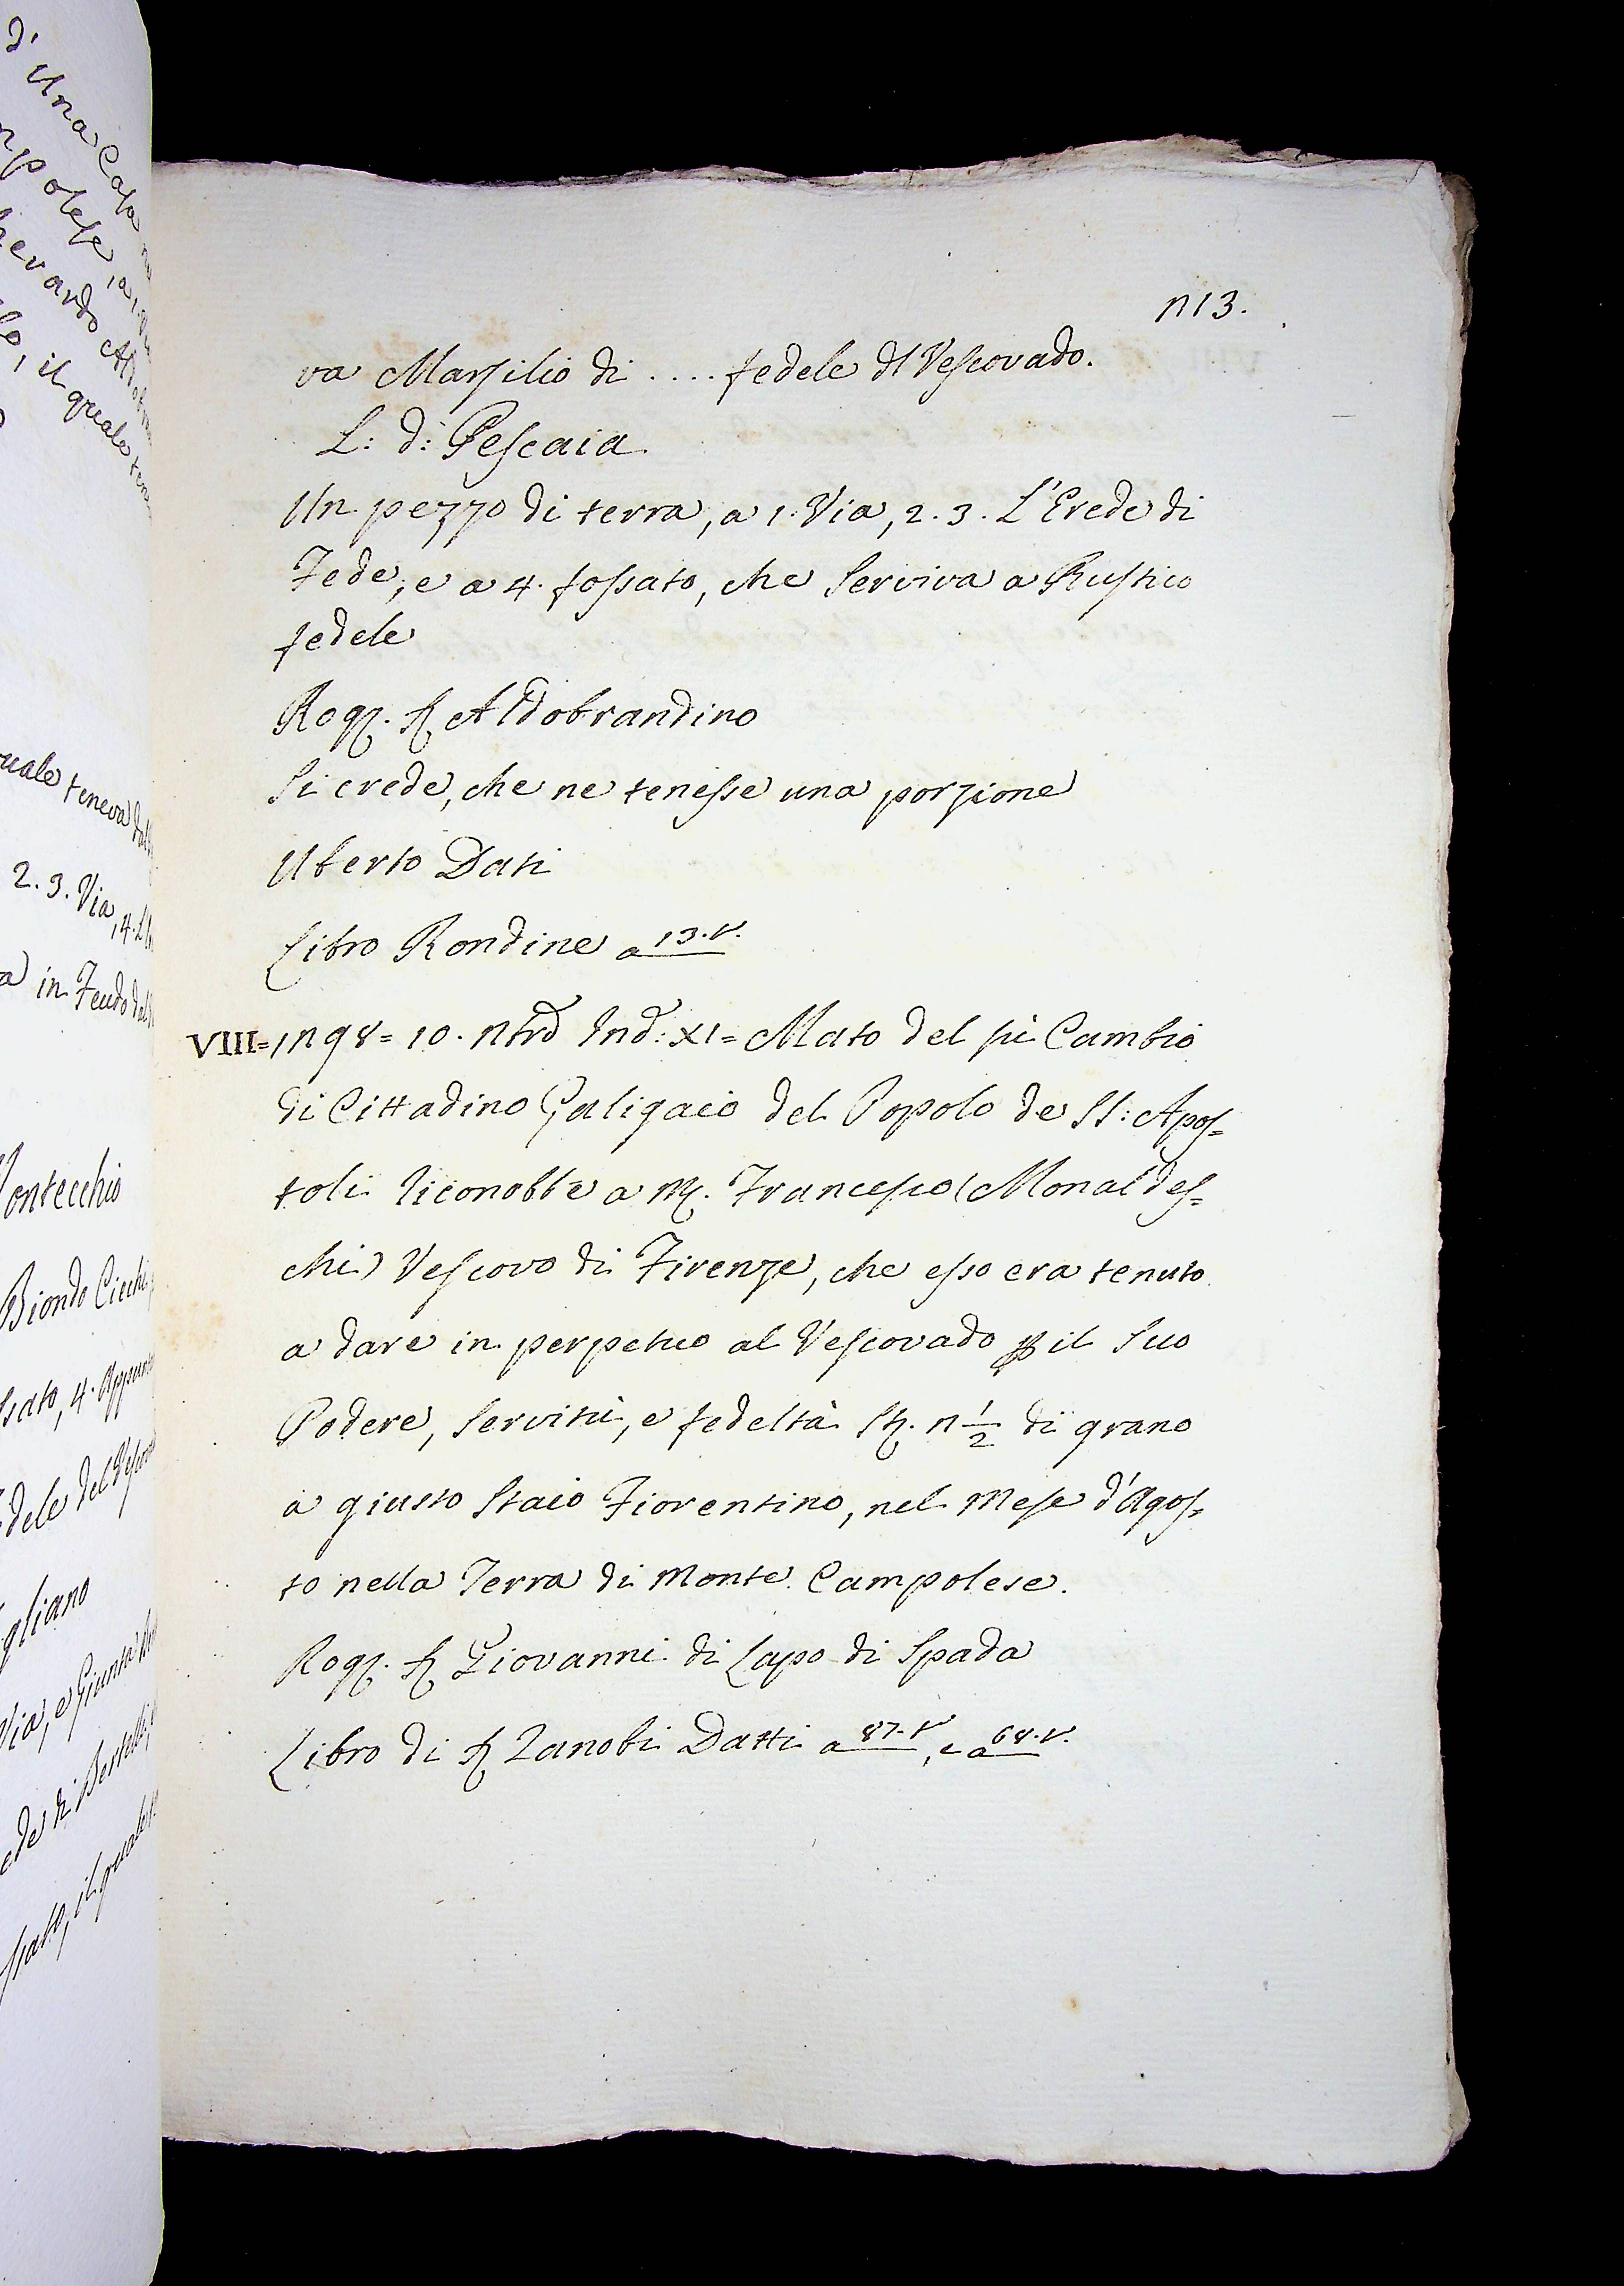 d'una Casa
npolese, a 1.
il quale ten
quale teneva dal
2. 3. Via, 4.
a in Feudo dal
Montecchio
Biondo Ciechi
ssato, 4. Appunto
dele del Vescov
gliano
Via, e Giunta
ede di Bertelli,
ssato, il quale
713.
va Marsilio di .... fedele dl Vescovado.
L: d: Pescaia
Un pezzo di terra, a 1. Via, 2. 3. L'Erede di
Fede, e a 4. fossato, che Serviva a Rustico
fedele
Rog. S. Aldobrandino
Si crede, che ne tenesse una porzione
Uberto Dati
Libro Rondine a 13. v.
VIII = 1298 = 10. Ind: XI = Mato del fù Cambio
di Cittadino Galigaio del Popolo de SS: Apos=
toli riconobbe a M. Francesco (Monaldes=
chi) Vescovo di Firenze, che esso era tenuto
a dare in perpetuo al Vescovado p il Suo
Podere, Servitù, e fedeltà St. 7 1/2 di grano
a giusto Staio Fiorentino, nel Mese d'Agos=
to nella Terra di Monte Campolese.
Rog. S. Giovanni di Lapo di Spada
Libro di S. Zanobi Datti a 87. v, e a 68. v.